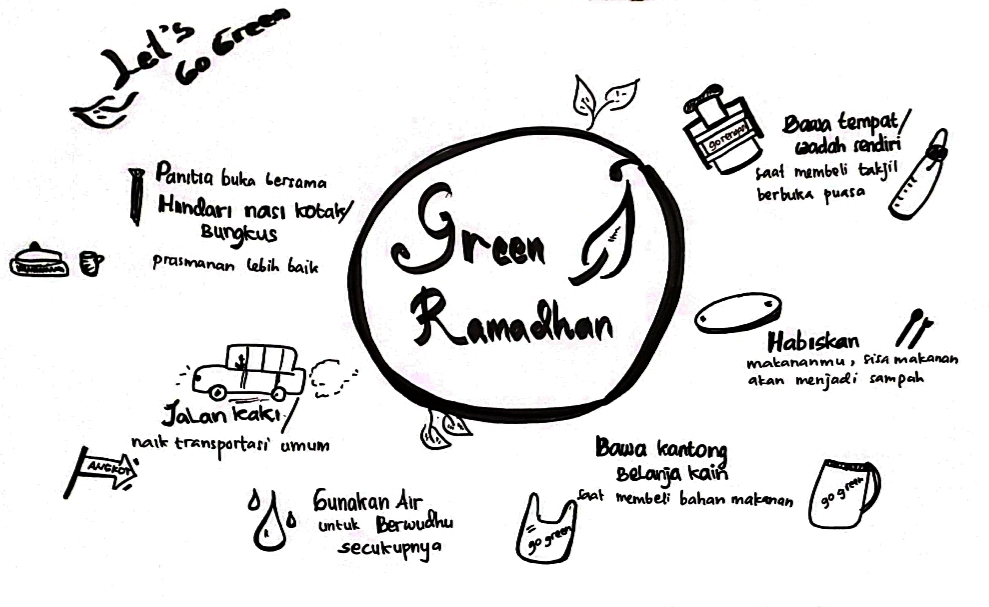 Let's
Go Green
Green
Ramadhan
gorengan
Bawa tempat/
wadah sendiri
saat membeli takjil
berbuka puasa
Habiskan
makananmu, sisa makanan
akan menjadi sampah
Bawa kantong
Belanja kain
saat membeli bahan makanan
go green
go green
Gunakan Air
untuk Berwudhu
secukupnya
Jalan kaki/
naik transportasi umum
ANGKOT
Panitia buka bersama
Hindari nasi kotak/
Bungkus
prasmanan lebih baik